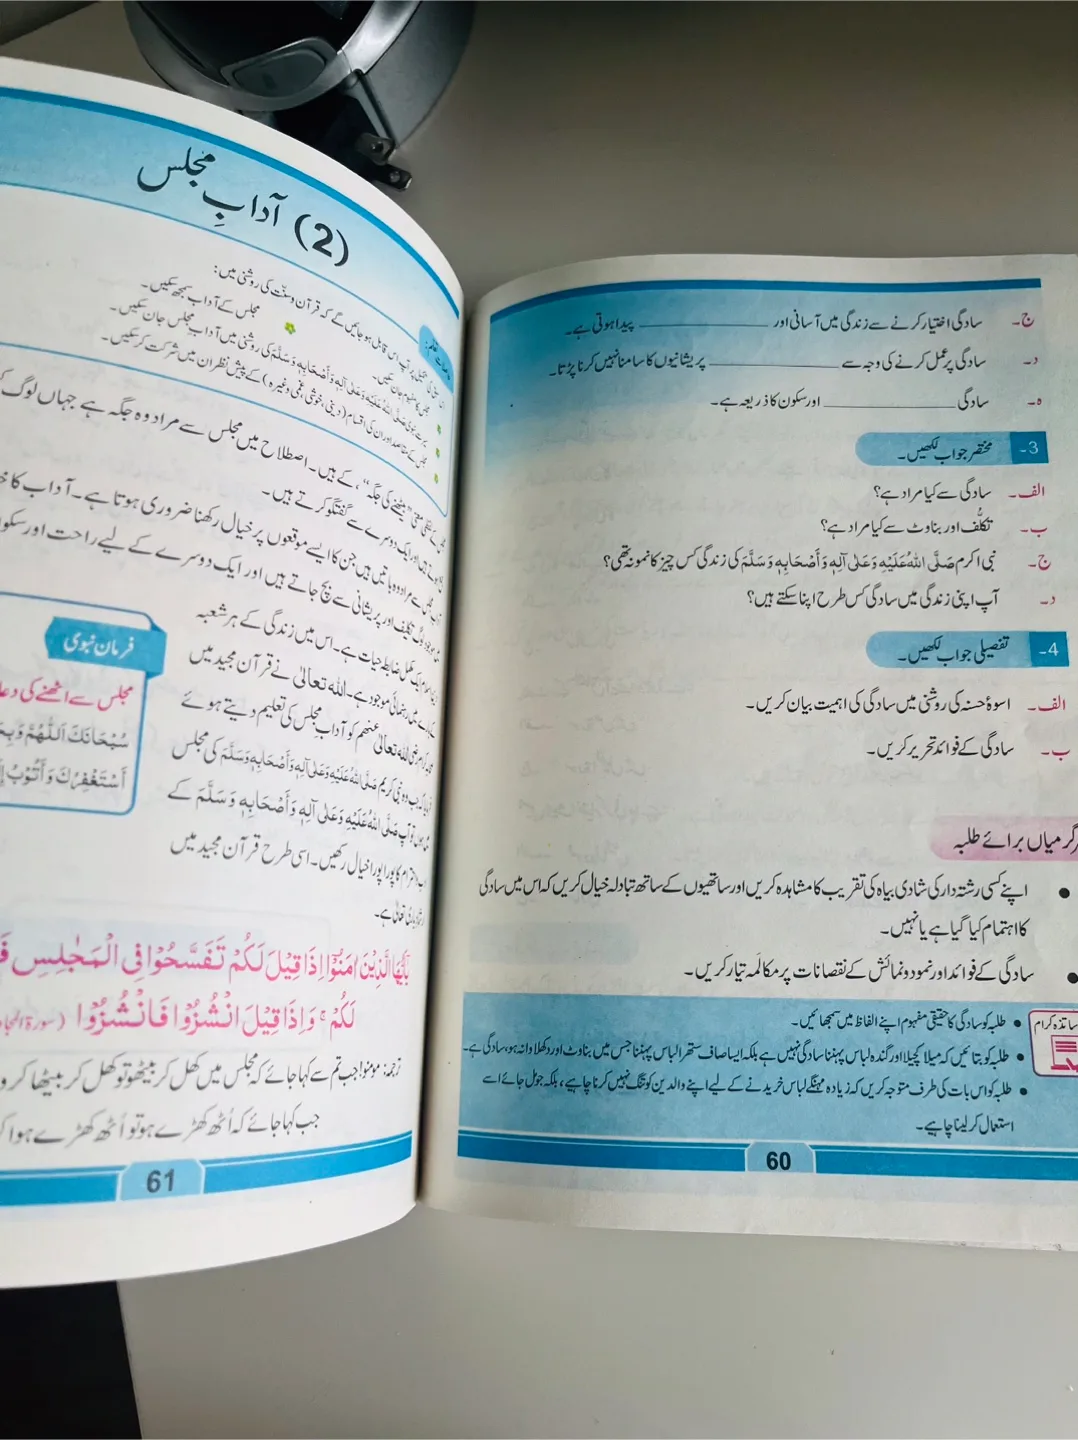 ج۔ سادگی اختیار کرنے سے زندگی میں آسانی اور __________ پیدا ہوتی ہے۔
د۔ سادگی پر عمل کرنے کی وجہ سے __________ پریشانیوں کا سامنا نہیں کرنا پڑتا۔
ہ۔ سادگی __________ اور سکون کا ذریعہ ہے۔
3۔ مختصر جواب لکھیں۔
الف۔ سادگی سے کیا مراد ہے؟
ب۔ تکلّف اور بناوٹ سے کیا مراد ہے؟
ج۔ نبی اکرم صَلَّی اللہُ عَلَیْہِ وَعَلٰی آلِہٖ وَاَصْحَابِہٖ وَسَلَّمَ کی زندگی کس چیز کا نمونہ تھی؟
د۔ آپ اپنی زندگی میں سادگی کس طرح اپنا سکتے ہیں؟
4۔ تفصیلی جواب لکھیں۔
الف۔ اسوۂ حسنہ کی روشنی میں سادگی کی اہمیت بیان کریں۔
ب۔ سادگی کے فوائد تحریر کریں۔
گرمیاں برائے طلبہ
• اپنے کسی رشتہ دار کی شادی بیاہ کی تقریب کا مشاہدہ کریں اور ساتھیوں کے ساتھ تبادلہ خیال کریں کہ اس میں سادگی
کا اہتمام کیا گیا ہے یا نہیں۔
• سادگی کے فوائد اور نمود و نمائش کے نقصانات پر مکالمہ تیار کریں۔
اساتذہ کرام
• طلبہ کو سادگی کا حقیقی مفہوم اپنے الفاظ میں سمجھائیں۔
• طلبہ کو بتائیں کہ میلا کچیلا اور گندہ لباس پہننا سادگی نہیں ہے بلکہ ایسا صاف ستھرا لباس پہننا جس میں بناوٹ اور دکھلاوا نہ ہو، سادگی ہے۔
• طلبہ کو اس بات کی طرف متوجہ کریں کہ زیادہ مہنگے لباس خریدنے کے لیے اپنے والدین کو تنگ نہیں کرنا چاہیے، بلکہ جو مل جائے اسے
استعمال کر لینا چاہیے۔
60
(2) آدابِ مجلس
اس سبق کی تکمیل پر آپ اس قابل ہو جائیں گے کہ قرآن و سنّت کی روشنی میں:
مجلس کا مفہوم جان سکیں۔ مجلس کے آداب سمجھ سکیں۔
سیرتِ نبوی صَلَّی اللہُ عَلَیْہِ وَعَلٰی آلِہٖ وَاَصْحَابِہٖ وَسَلَّمَ کی روشنی میں آدابِ مجلس جان سکیں۔
مجلس کے مقاصد اور ان کی اقسام (دینی، خوشی، غمی وغیرہ) کے پیش نظر ان میں شرکت کر سکیں۔
لفظی معنی ”بیٹھنے کی جگہ“ کے ہیں۔ اصطلاح میں مجلس سے مراد وہ جگہ ہے جہاں لوگ
اور ایک دوسرے سے گفتگو کرتے ہیں۔
سے مراد وہ باتیں ہیں جن کا ایسے موقعوں پر خیال رکھنا ضروری ہوتا ہے۔ آداب کا
لوگ تکلیف اور پریشانی سے بچ جاتے ہیں اور ایک دوسرے کے لیے راحت اور سکون
ایک مکمل ضابطہ حیات ہے۔ اس میں زندگی کے ہر شعبہ
میں رہنمائی موجود ہے۔ اللہ تعالیٰ نے قرآن مجید میں
رضی اللہ تعالیٰ عنھم کو آدابِ مجلس کی تعلیم دیتے ہوئے
نبی کریم صَلَّی اللہُ عَلَیْہِ وَعَلٰی آلِہٖ وَاَصْحَابِہٖ وَسَلَّمَ کی مجلس
میں ہوں تو آپ صَلَّی اللہُ عَلَیْہِ وَعَلٰی آلِہٖ وَاَصْحَابِہٖ وَسَلَّمَ کے
ادب و احترام کا پورا پورا خیال رکھیں۔ اسی طرح قرآن مجید میں
ارشاد باری تعالیٰ ہے۔
فرمان نبوی
مجلس سے اٹھنے کی دعا
سُبْحَانَكَ اَللّٰهُمَّ وَبِحَمْ
اَسْتَغْفِرُكَ وَاَتُوْبُ اِلَ
يٰٓاَيُّهَا الَّذِيْنَ اٰمَنُوْٓا اِذَا قِيْلَ لَكُمْ تَفَسَّحُوْا فِى الْمَجٰلِسِ فَ
لَكُمْ ۚ وَاِذَا قِيْلَ انْشُزُوْا فَانْشُزُوْا (سورۃ المجا
ترجمہ: مومنو! جب تم سے کہا جائے کہ مجلس میں کھل کر بیٹھو تو کھل کر بیٹھا کرو
جب کہا جائے کہ اُٹھ کھڑے ہو تو اُٹھ کھڑے ہوا ک
61